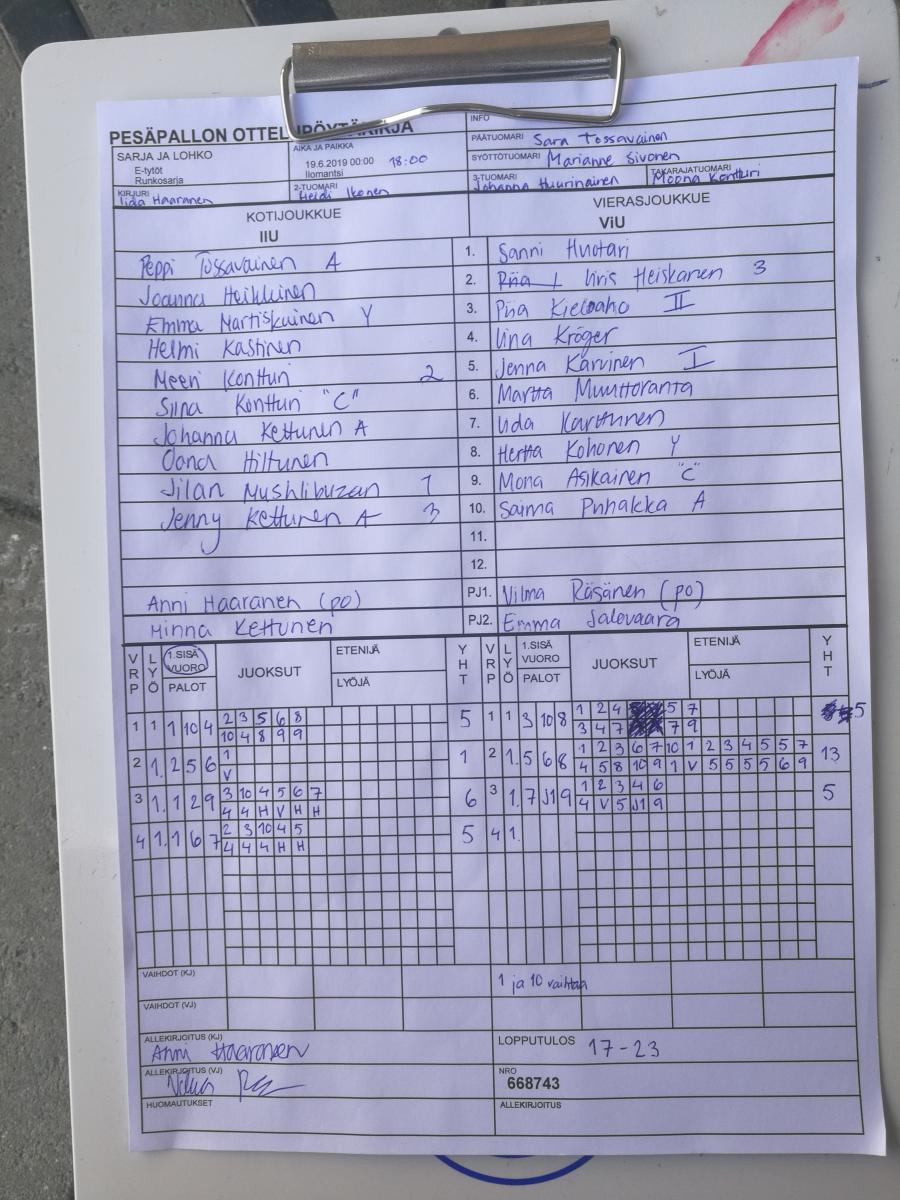 PESÄPALLON OTTELUPÖYTÄKIRJA
INFO
SARJA JA LOHKO
E-tytöt
Runkosarja
AIKA JA PAIKKA
19.6.2019 00:00 18:00
Ilomantsi
PÄÄTUOMARI Sara Tossavainen
SYÖTTÖTUOMARI Marianne Sivonen
KIRJURI Iida Haaranen
2-TUOMARI Heidi Ikonen
3-TUOMARI Johanna Huurinainen
TAKARAJATUOMARI Moona Kontturi
KOTIJOUKKUE VIERASJOUKKUE
IIU ViU
Peppi Tossavainen A 1. Sanni Huotari
Joanna Heikkinen 2. Iiris Heiskanen 3
Emma Martiskainen Y 3. Piia Kieloaho II
Helmi Kastinen 4. Iina Kröger
Meeri Kontturi 2 5. Jenna Karvinen I
Siina Kontturi "C" 6. Martta Muuttoranta
Johanna Kettunen A 7. Iida Karttunen
Oona Hiltunen 8. Hertta Kohonen Y
Jilan Mushlibuzan 1 9. Mona Asikainen "C"
Jenny Kettunen A 3 10. Saima Puhakka A
11.
12.
Anni Haaranen (po) PJ1. Vilma Räsänen (po)
Minna Kettunen PJ2. Emma Salovaara
VRP LYÖ 1.SISÄ VUORO PALOT JUOKSUT ETENIJÄ LYÖJÄ YHT VRP LYÖ 1.SISÄ VUORO PALOT JUOKSUT ETENIJÄ LYÖJÄ YHT
1 1 1 10 4 2 3 5 6 8 5 1 1 3 10 8 1 2 4 5 7 5
10 4 8 9 9 3 4 7 7 9
2 1. 2 5 6 1 1 2 1. 5 6 8 1 2 3 6 7 10 1 2 3 4 5 5 7 13
V 4 5 8 10 9 1 V 5 5 5 5 6 9
3 1. 1 2 9 3 10 4 5 6 7 6 3 1. 7 J1 9 1 2 3 4 6 5
4 4 H V H H 4 V 5 J1 9
4 1. 1 6 7 2 3 10 4 5 5 4 1.
4 4 4 H H
VAIHDOT (KJ) 1 ja 10 vaihtaa
VAIHDOT (VJ)
ALLEKIRJOITUS (KJ) Anni Haaranen
LOPPUTULOS 17-23
ALLEKIRJOITUS (VJ)
NRO
668743
HUOMAUTUKSET
ALLEKIRJOITUS